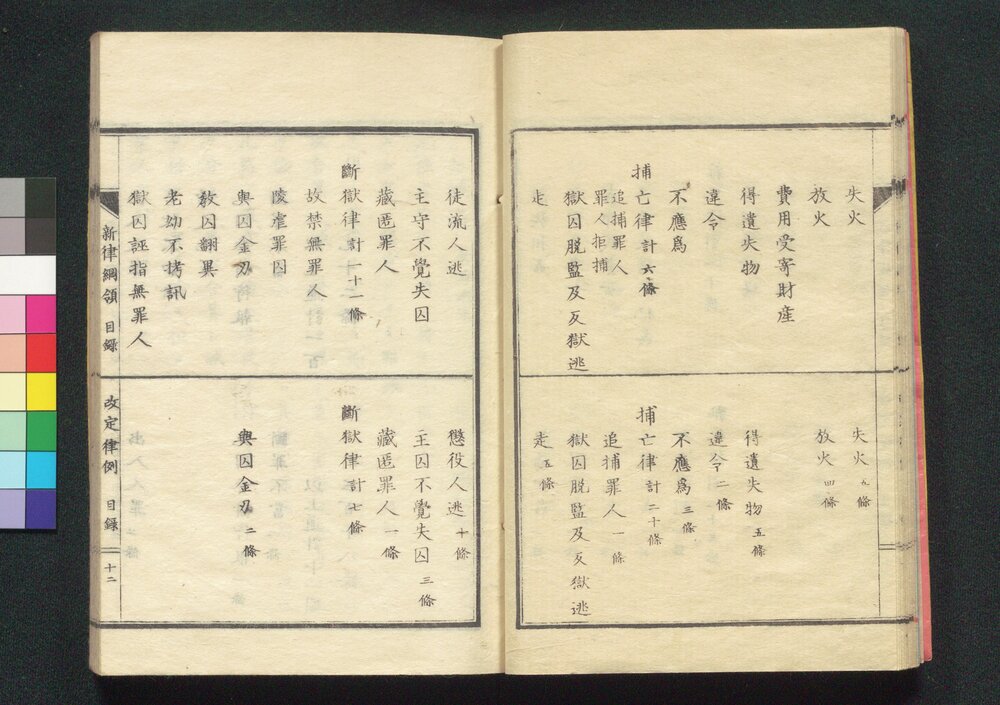 失火
放火
費用受寄財産
得遺失物
違令
不應爲
捕亡律計六條
追捕罪人
罪人拒捕
獄囚脱監及反獄逃
走
失火 五條
放火 四條
得遺失物 五條
違令 二條
不應爲 三條
捕亡律計二十條
追捕罪人 一條
獄囚脱監及反獄逃
走 五條
徒流人逃
主守不覺失囚
藏匿罪人
斷獄律計十一條
故禁無罪人
陵虐罪囚
與囚金刃
教囚翻異
老幼不拷訊
獄囚誣指無罪人
懲役人逃 十條
主囚不覺失囚 三條
藏匿罪人 一條
斷獄律計七條
與囚金刃 二條
新律綱領 目錄
改定律例 目錄 十二